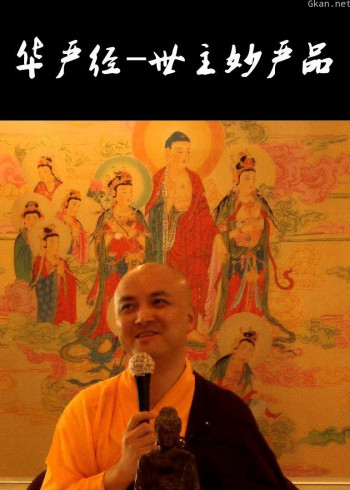 Gkan.net
华严经-世主妙严品